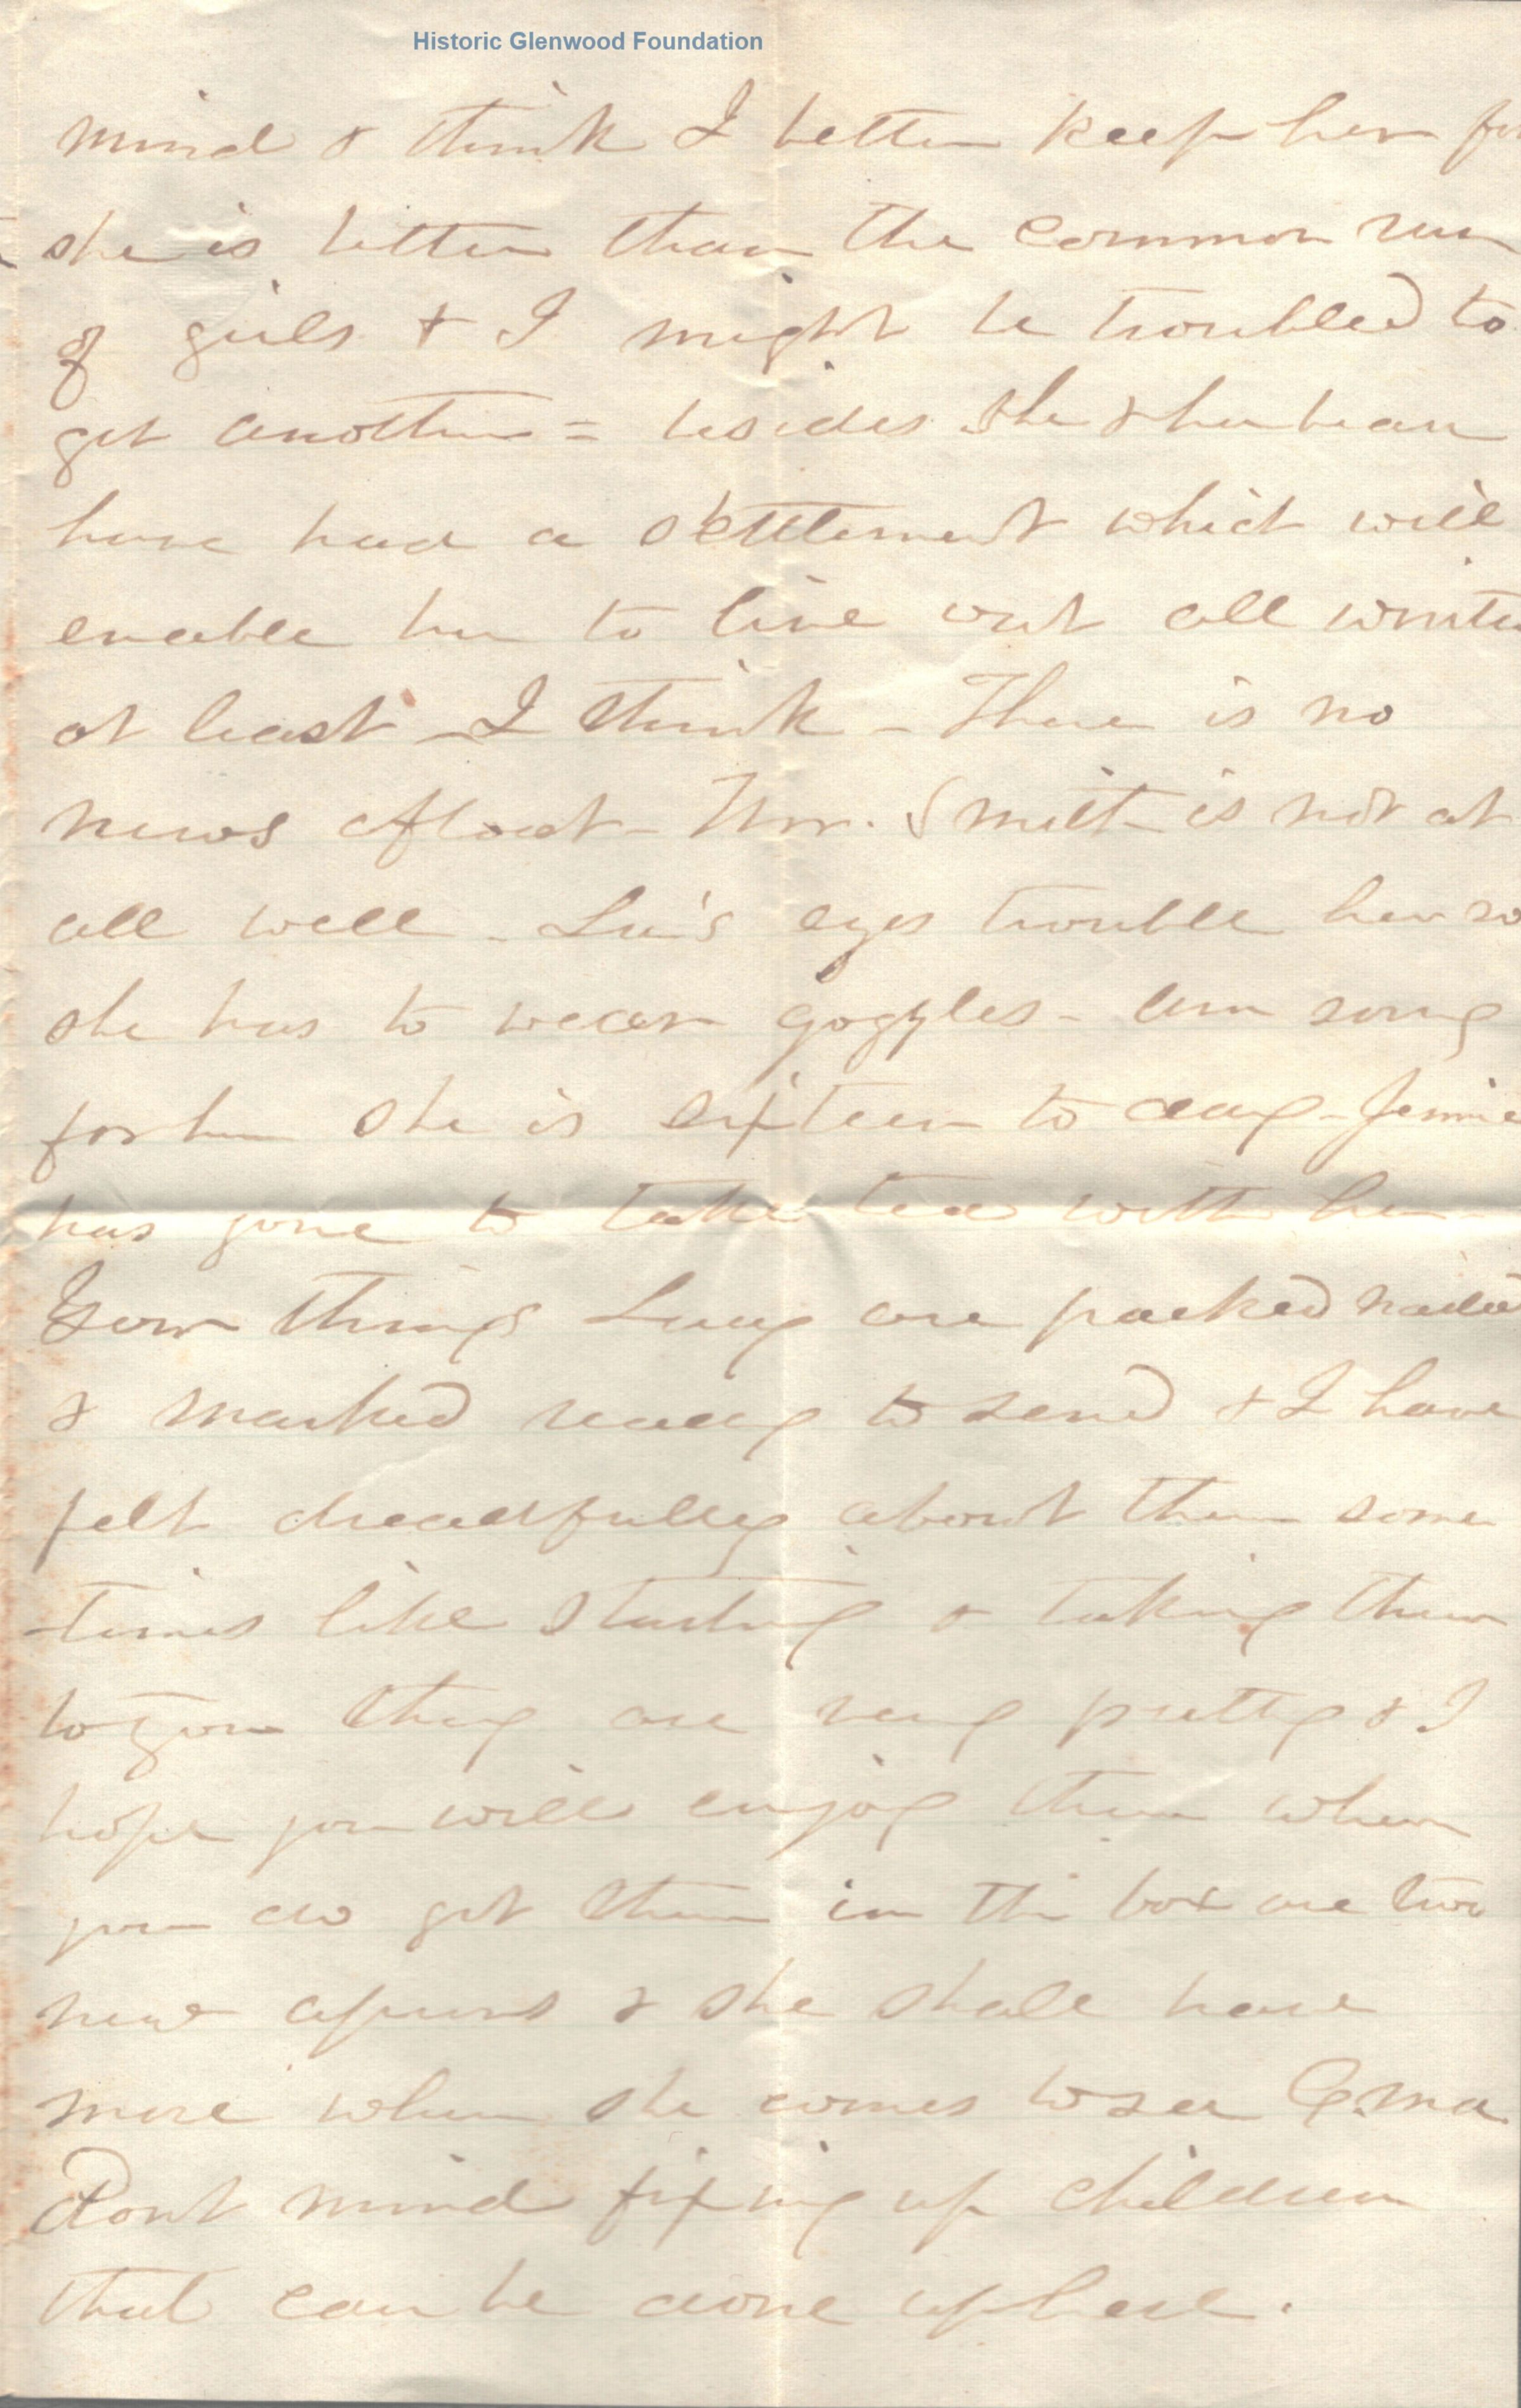 Historic Glenwood Foundation
mind & think I better keep her for
she is better than the common run
of girls & I might be troubled to
get another = besides she & her beau
have had a settlement which will
enable her to live out all winter
at least - I think - There is no
news afloat - Mr. Smith is not at
all well - Lu's eyes trouble her so
she has to wear goggles - am sorry
for her she is sixteen to day - Jennie
has gone to take tea with her -
Your things Lucy are packed nailed
& marked ready to send & I have
felt dreadfully about them some
times like starting & taking them
to you they are very pretty & I
hope you will enjoy them when
you do get them in the box are two
new aprons & she shall have
more when she comes to see G.ma
Dont mind fixing up children
that can be done up here.